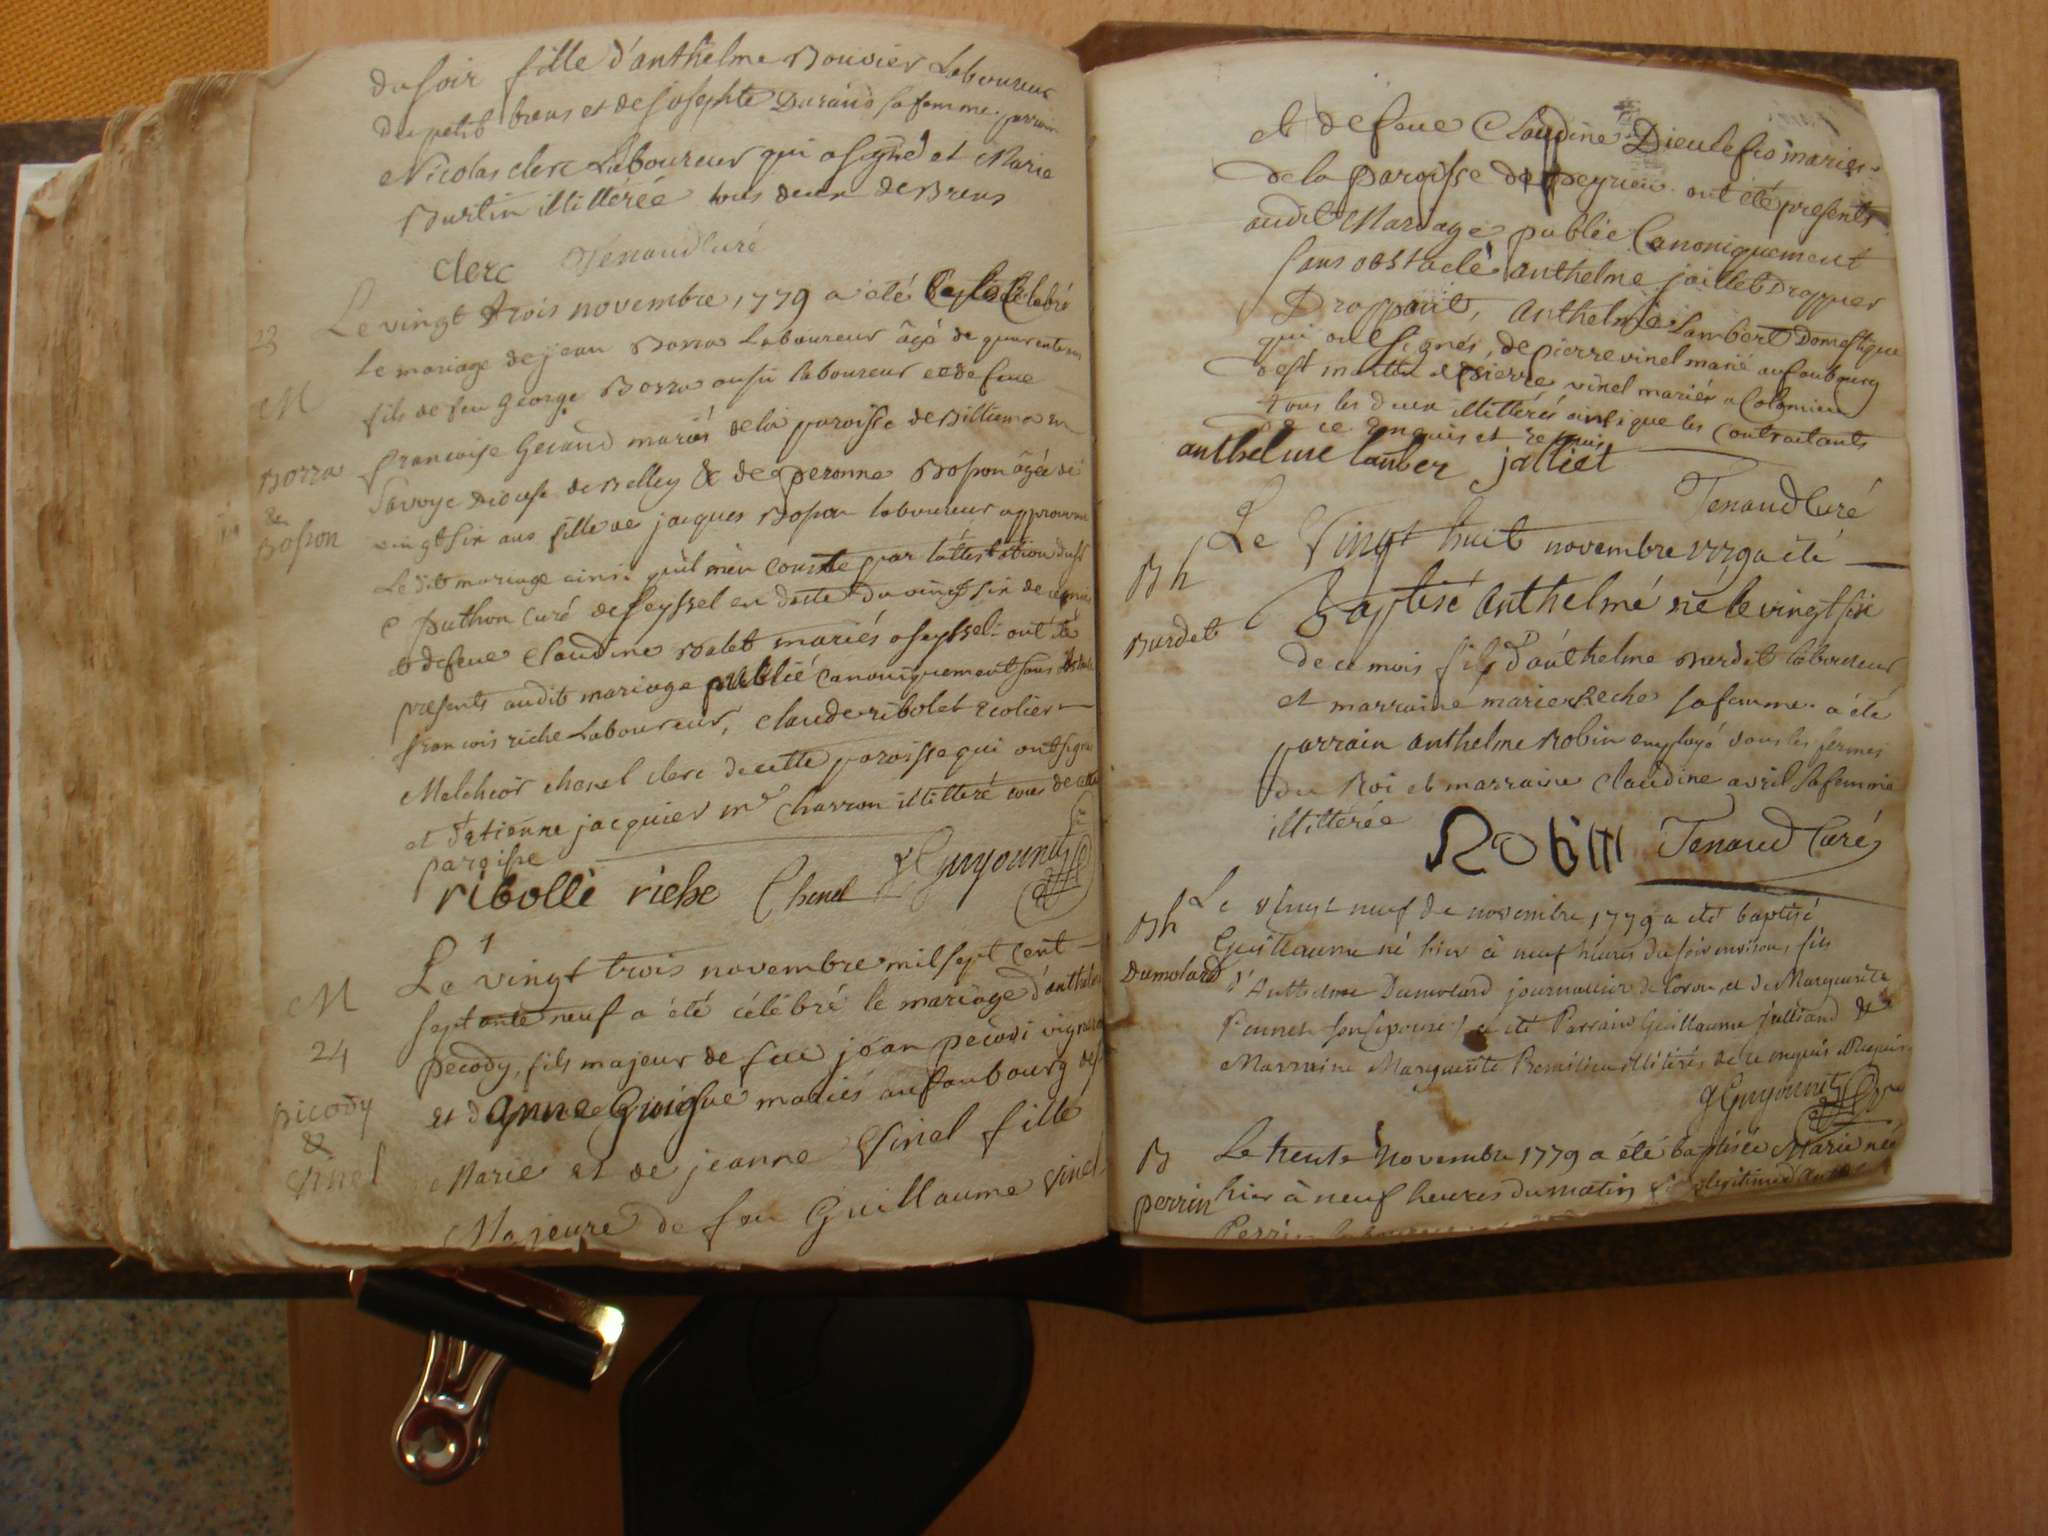 du soir fille d'anthelme Bouvier Laboureur
du petit brens et de josephte Durand sa femme. parrain
Nicolas clerc Laboureur qui a signé et Marie
Burtin illitérée tous deux de Brens
clerc Tenaud Curé
23
Le vingt trois novembre 1779 a été Célébré
M
le mariage de jean Borra Laboureur âgé de quarente
fils de feu George Borra aussi laboureur et de feue
Borra
francoise Geraud mariés de la paroisse de Billieme en
&
Savoye Diocese de Belley & de peronne Boson âgée de
Boson
vingt six ans fille de jacques Boson laboureur approuvant
Le dit mariage ainsi qu'il m'en conste par l'attestation du
puthon curé de Seyssel en datte du vingt six de
et de feue Claudine Balet mariés a Seyssel. ont été
presents audit mariage publié canoniquement sans
françois riche Laboureur, claude ribolet Ecolier
Melchior chenel clerc de cette paroisse qui ont signé
et Estienne jacquier m.d Charron illitteré tous de cette
paroisse
ribolle riche Chenel Guyounet
M
Le vingt trois novembre mil sept cent
24
septante neuf a été célébré le mariage d'anthelme
picody
pecody, fils majeur de feu jean pecodi vigneron
&
et d'anne Guigue mariés au faubourg de
Vinel
Marie et de jeanne Vinel fille
Majeure de feu Guillaume Vinel
et de feue Claudine Dieulefis mariés
de la paroisse de peyrieu. ont été presents
audit Mariage publié Canoniquement
sans obstacle anthelme jaillet Drappier
Drappier, Anthelme Lambert Domestique
qui ont signés, de pierre vinel marié au faubourg
et pierre vinel mariés a Colomieu
tous les deux illittérés ainsi que les contractants
de ce enquis et requis
anthelme lanber jalliet
Tenaud Curé
Bh
Le Vingt huit novembre 1779 a été
Burdet
Baptisé Anthelme né le vingt six
de ce mois fils d'anthelme Burdet laboureur
et marraine marie Reche sa femme. a été
parrain anthelme Robin employé dans les fermes
du Roi et marraine Claudine avril sa femme
illitérée
Robin Tenaud Curé
Bh
Le vingt neuf de novembre 1779 a été baptisé
Guillaume né hier à neuf heures du soir environ, fils
Dumolard
d'Anthelme Dumolard journallier de Coron, et de Marguerite
son epouse, a été Parrain Guillaume Julliand et
Marraine Marguerite illitérés de ce enquis et Requis
Guyounet
B
Le trente Novembre 1779 a été baptisée Marie née
perrin
hier à neuf heures du matin
Perrin